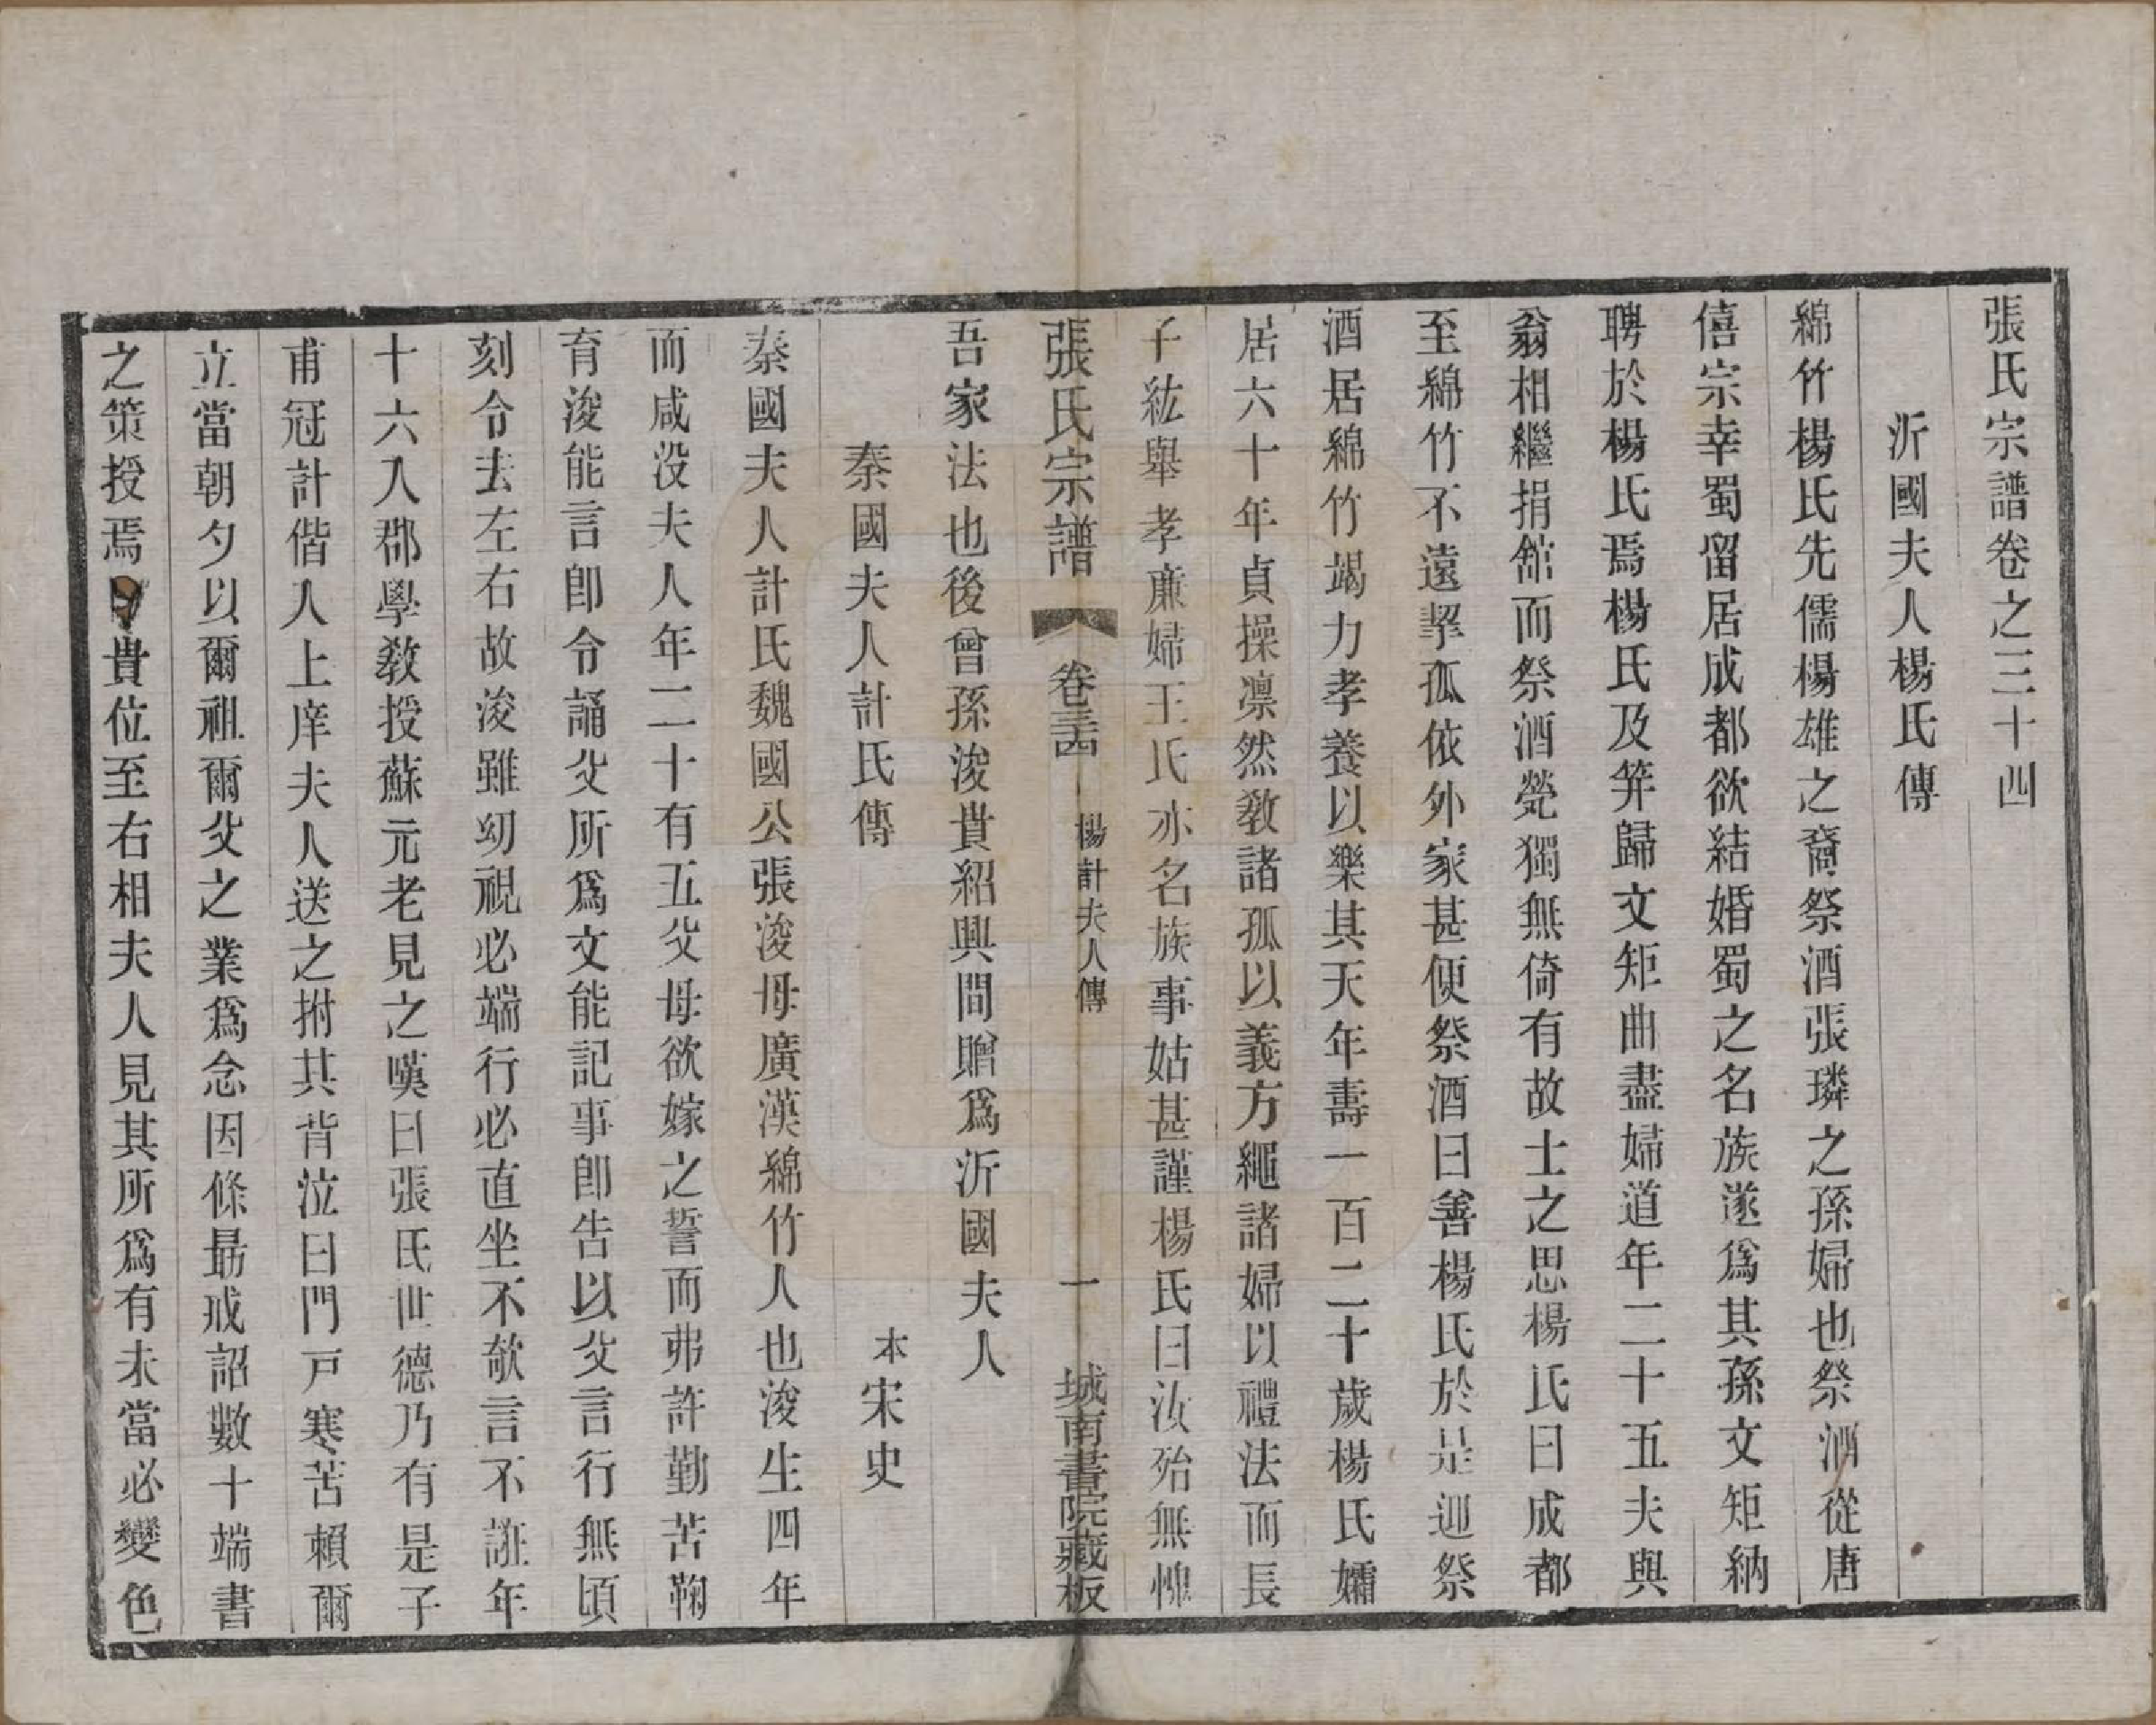 張氏宗譜卷之三十四
沂國夫人楊氏傳
綿竹楊氏先儒楊雄之裔祭酒張璘之孫婦也祭酒從唐
僖宗幸蜀留居成都欲結婚蜀之名族遂爲其孫文矩納
聘於楊氏焉楊氏及笄歸文矩曲盡婦道年二十五夫與
翁相繼捐舘而祭酒煢獨無倚有故士之思楊氏曰成都
至綿竹不遠挈孤依外家甚便祭酒曰善楊氏於是迎祭
酒居綿竹竭力孝養以樂其天年壽一百二十歲楊氏孀
居六十年貞操凛然敎諸孤以義方繩諸婦以禮法而長
子紘舉孝亷婦王氏亦名族事姑甚謹楊氏曰汝殆無愧
張氏宗譜 卷三十四 楊計夫人傳 一 城南書院藏板
吾家法也後曾孫浚貴紹興間贈爲沂國夫人
秦國夫人計氏傳 本宋史
秦國夫人計氏魏國公張浚母廣漢綿竹人也浚生四年
而咸没夫人年二十有五父母欲嫁之誓而弗許勤苦鞠
育浚能言卽令誦父所爲文能記事卽告以父言行無頃
刻令去左右故浚雖幼視必端行必直坐不欹言不誑年
十六入郡學敎授蘇元老見之嘆曰張氏世德乃有是子
甫冠計偕入上庠夫人送之拊其背泣曰門戸寒苦賴爾
立當朝夕以爾祖爾父之業爲念因條勗戒詔數十端書
之策授焉貴位至右相夫人見其所爲有未當必變色